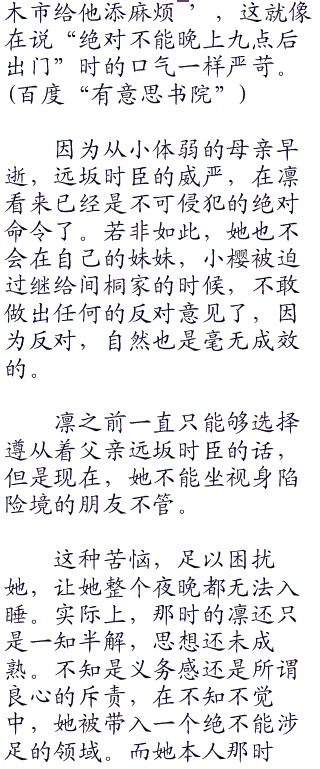 木市给他添麻烦’，这就像
在说“绝对不能晚上九点后
出门”时的口气一样严苛。
(百度“有意思书院”)
因为从小体弱的母亲早
逝，远坂时臣的威严，在凛
看来已经是不可侵犯的绝对
命令了。若非如此，她也不
会在自己的妹妹，小樱被迫
过继给间桐家的时候，不敢
做出任何的反对意见了，因
为反对，自然也是毫无成效
的。
凛之前一直只能够选择
遵从着父亲远坂时臣的话，
但是现在，她不能坐视身陷
险境的朋友不管。
这种苦恼，足以困扰
她，让她整个夜晚都无法入
睡。实际上，那时的凛还只
是一知半解，思想还未成
熟。不知是义务感还是所谓
良心的斥责，在不知不觉
中，她被带入一个绝不能涉
足的领域。而她本人那时